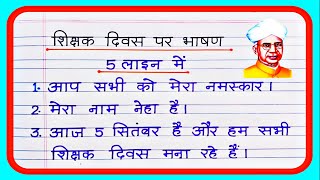 शिक्षक दिवस पर भाषण
5 लाइन में
1. आप सभी को मेरा नमस्कार।
2. मेरा नाम नेहा है।
3. आज 5 सितंबर है और हम सभी
शिक्षक दिवस मना रहे हैं।